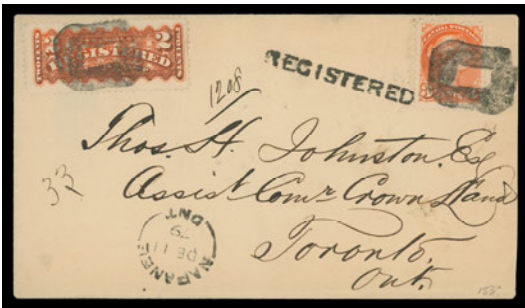 2 REGISTERED 2
REGISTERED
1208
Thos. H. Johnston. Esq
33
Assist Comr Crown Lands
Toronto.
Ont.
NAPANEE
DE 11
79
ONT
155.